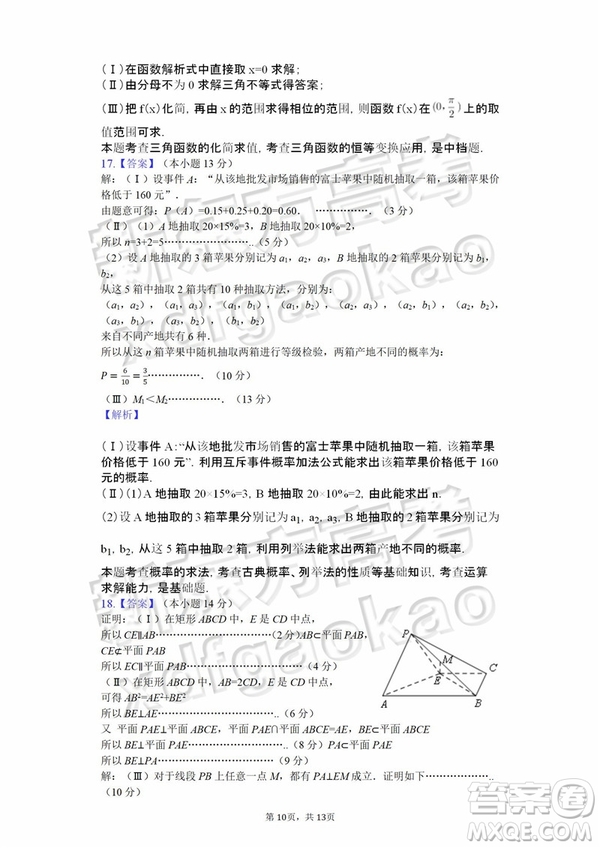 (Ⅰ)在函数解析式中直接取 x=0 求解；
(Ⅱ)由分母不为 0 求解三角不等式得答案；
(Ⅲ)把 f(x)化简，再由 x 的范围求得相位的范围，则函数 f(x)在 (0, π/2) 上的取
值范围可求．
本题考查三角函数的化简求值，考查三角函数的恒等变换应用，是中档题．
17.【答案】（本小题 13 分）
解：（Ⅰ）设事件 A：“从该地批发市场销售的富士苹果中随机抽取一箱，该箱苹果价
格低于 160 元”．
由题意可得：P（A）=0.15+0.25+0.20=0.60．……………．（3 分）
（Ⅱ）（1）A 地抽取 20×15%=3，B 地抽取 20×10%=2，
所以 n=3+2=5……………………..（5 分）
（2）设 A 地抽取的 3 箱苹果分别记为 a₁，a₂，a₃，B 地抽取的 2 箱苹果分别记为 b₁，
b₂，
从这 5 箱中抽取 2 箱共有 10 种抽取方法，分别为：
（a₁，a₂），（a₁，a₃），（a₁，b₁），（a₁，b₂），（a₂，a₃），（a₂，b₁），（a₂，b₂），
（a₃，b₁），（a₃，b₂），（b₁，b₂）
来自不同产地共有 6 种．
所以从这 n 箱苹果中随机抽取两箱进行等级检验，两箱产地不同的概率为：
P=6/10=3/5……………．（10 分）
（Ⅲ）M₁＜M₂…………….（13 分）
【解析】
(Ⅰ)设事件 A:“从该地批发市场销售的富士苹果中随机抽取一箱，该箱苹果
价格低于 160 元”．利用互斥事件概率加法公式能求出该箱苹果价格低于 160
元的概率．
(Ⅱ)(1)A 地抽取 20×15%=3, B 地抽取 20×10%=2, 由此能求出 n.
(2)设 A 地抽取的 3 箱苹果分别记为 a₁, a₂, a₃, B 地抽取的 2 箱苹果分别记为
b₁, b₂, 从这 5 箱中抽取 2 箱，利用列举法能求出两箱产地不同的概率．
本题考查概率的求法，考查古典概率、列举法等基础知识，考查运算
求解能力，是基础题．
18.【答案】（本小题 14 分）
证明：（Ⅰ）在矩形 ABCD 中，E 是 CD 中点，
所以 CE∥AB……………………………（2 分）AB⊂平面 PAB，
CE⊄平面 PAB
所以 EC∥平面 PAB……………………………（4 分）
（Ⅱ）在矩形 ABCD 中，AB=2CD，E 是 CD 中点，
可得 AB²=AE²+BE²
所以 BE⊥AE……………………..（6 分）
又 平面 PAE⊥平面 ABCE，平面 PAE∩平面 ABCE=AE，BE⊂平面 ABCE
所以 BE⊥平面 PAE……………………………..（8 分）PA⊂平面 PAE
所以 BE⊥PA……………………………（9 分）
解：（Ⅲ）对于线段 PB 上任意一点 M，都有 PA⊥EM 成立．证明如下………………
（10 分）
P
M
C
E
A
B
第 10页，共 13页
新东方高考
xdfgaokao
新东方高考
xdfgaokao
答案圈
MXQE.COM